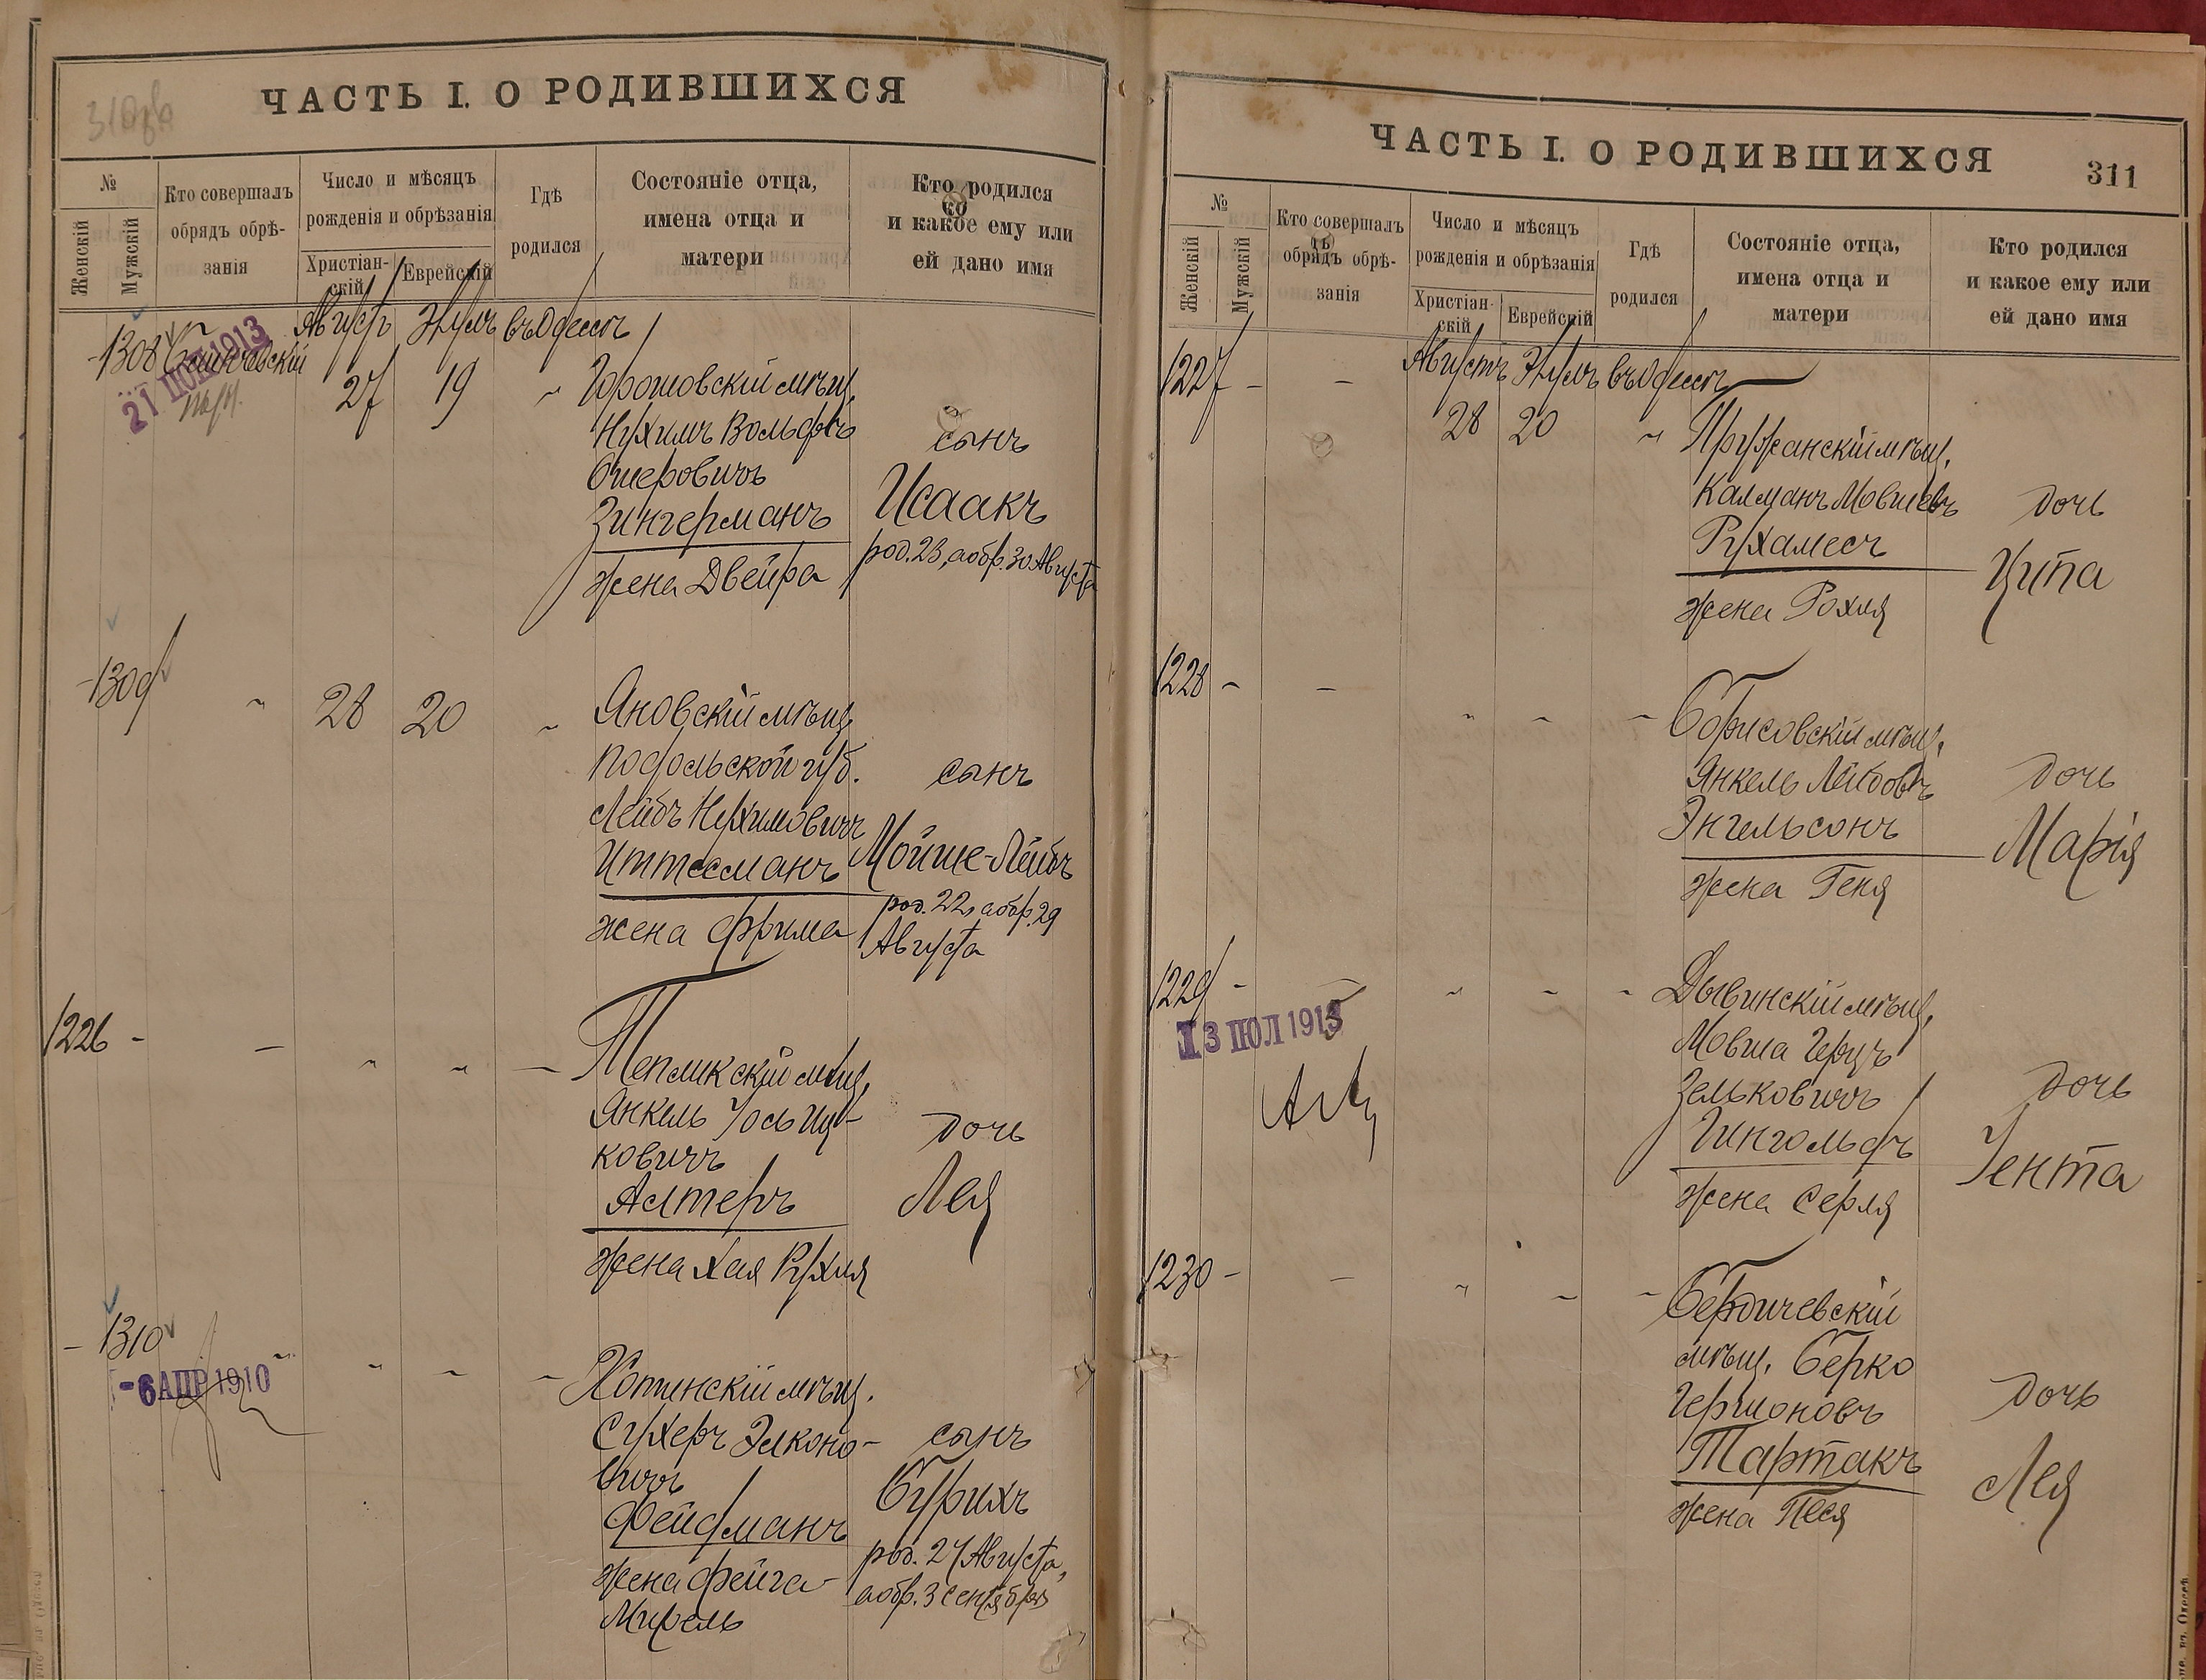 310об
ЧАСТЬ I. О РОДИВШИХСЯ
№
Женскій
Мужскій
Кто совершалъ
обрядъ обрѣ-
занія
Число и мѣсяцъ
рожденія и обрѣзанія
Христіан-
скій
Еврейскій
Гдѣ
родился
Состояніе отца,
имена отца и
матери
Кто родился
и какое ему или
ей дано имя
-1308
21 1913
Августъ Элулъ въ Одессѣ
27 19 "
мѣщ.
Нухимъ Вольфъ
Ошеровичъ
Зингерманъ
жена Двейра
сынъ
Исаакъ
род. 23, а обр. 30 Августа
-1309
" 28 20 "
Яновскій мѣщ.
Подольской губ.
Лейбъ Нухимовичъ
Иттесманъ
жена Фрима
сынъ
Мойше-Лейбъ
род. 22, а обр. 29
Августа
1226 -
- " " -
Тепликскій мѣщ.
Янкель Іось Иц-
ковичъ
Алтеръ
жена Хая Рухля
дочь
Лея
- 1310
-6 АПР 1910
" " " -
Хотинскій мѣщ.
Сухеръ Элконо-
вичъ
Фейфманъ
жена Фейга-
Мирель
сынъ
Бурихъ
род. 27 Августа,
а обр. 3 сентября
ЧАСТЬ I. О РОДИВШИХСЯ
311
№
Женскій
Мужскій
Кто совершалъ
обрядъ обрѣ-
занія
Число и мѣсяцъ
рожденія и обрѣзанія
Христіан-
скій
Еврейскій
Гдѣ
родился
Состояніе отца,
имена отца и
матери
Кто родился
и какое ему или
ей дано имя
1227 -
- Августъ Элулъ въ Одессѣ
28 20 "
Пружанскій мѣщ.
Калманъ Мовшевъ
Рухамесъ
жена Рохля
дочь
Ципа
1228 -
- " - -
Борисовскій мѣщ.
Янкель Лейбовъ
Энгельсонъ
жена Геня
дочь
Марія
1229 -
- " - -
13 ІЮЛ 1913
Дывинскій мѣщ.
Мовша Герцъ
Зельковичъ
Гингольдъ
жена Серля
дочь
Іента
1230 -
- " - -
Бердичевскій
мѣщ. Берко
Гершоновъ
Тартакъ
жена Песя
дочь
Лея